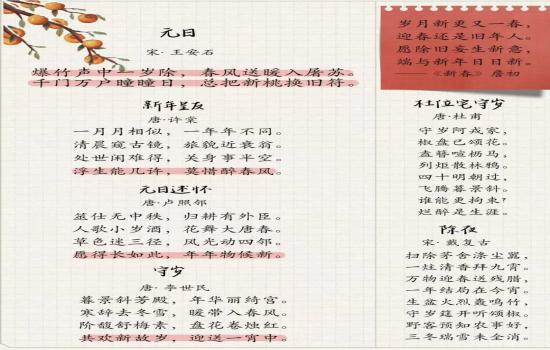 元日
宋·王安石
爆竹声中一岁除，春风送暖入屠苏。
千门万户曈曈日，总把新桃换旧符。
新年呈友
唐·许棠
一月月相似，一年年不同。
清晨窥古镜，旅貌近衰翁。
处世闲难得，关身事半空。
浮生能几许，莫惜醉春风。
元日述怀
唐·卢照邻
筮仕无中秩，归耕有外臣。
人歌小岁酒，花舞大唐春。
草色迷三径，风光动四邻。
愿得长如此，年年物候新。
守岁
唐·李世民
暮景斜芳殿，年华丽绮宫。
寒辞去冬雪，暖带入春风。
阶馥舒梅素，盘花卷烛红。
共欢新故岁，迎送一宵中。
岁月新更又一春，
迎春还是旧年人。
愿除旧妄生新意，
端与新年日日新。
——《新春》詹初
杜位宅守岁
唐·杜甫
守岁阿戎家，
椒盘已颂花。
盍簪喧枥马，
列炬散林鸦。
四十明朝过，
飞腾暮景斜。
谁能更拘束？
烂醉是生涯。
除夜
宋·戴复古
扫除茅舍涤尘嚣，
一炷清香拜九霄。
万物迎春送残腊，
一年结局在今宵。
生盆火烈轰鸣竹，
守岁筵开听颂椒。
野客预知农事好，
三冬瑞雪未全消。